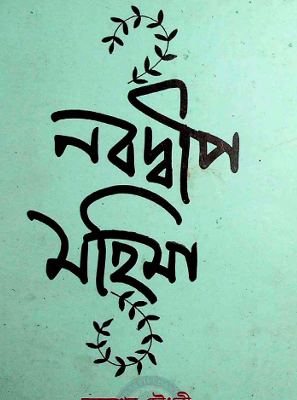 নবদ্বীপ
মহিমা